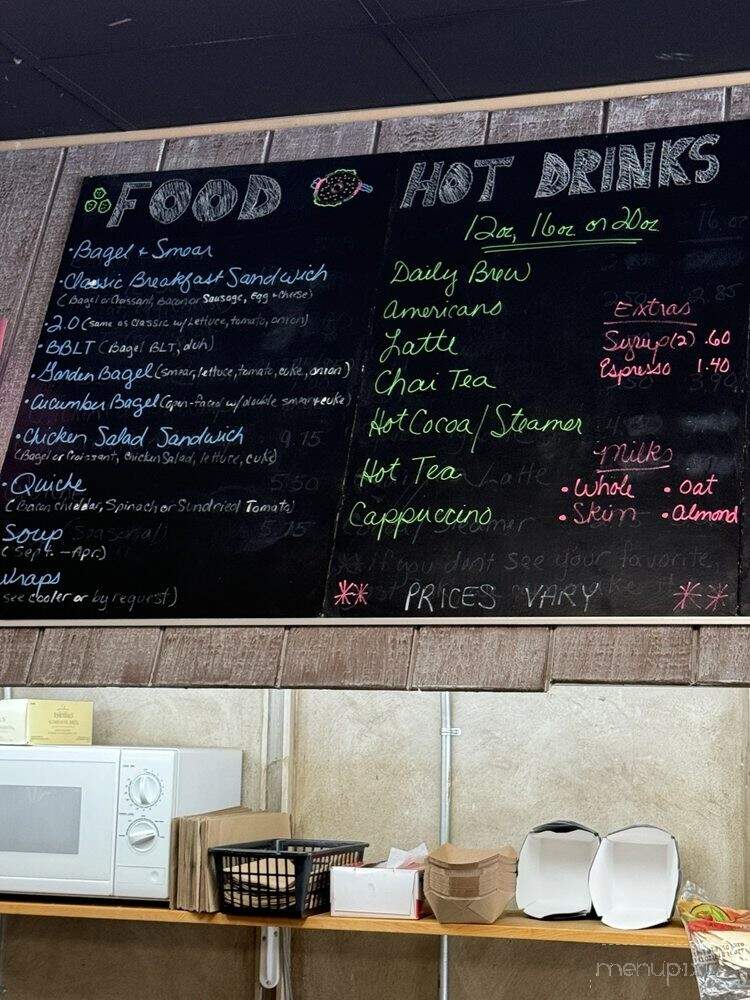 FOOD
• Bagel + Smear
• Classic Breakfast Sandwich
(Bagel or Croissant, Bacon or Sausage, Egg + Cheese)
• 2.0 (same as classic w/ Lettuce, tomato, onion)
• BBLT (Bagel BLT, duh)
• Garden Bagel (smear, lettuce, tomato, cuke, onion)
• Cucumber Bagel (open-faced w/ double smear + cuke)
• Chicken Salad Sandwich 9.75
(Bagel or Croissant, Chicken Salad, lettuce, cuke)
• Quiche 5.50
(Bacon cheddar, Spinach or Sundried Tomato)
Soup (Seasonal)
(Sept. - Apr.)
wraps
see cooler or by request)
HOT DRINKS
12oz, 16oz or 20oz
Daily Brew
Americano
Latte
Chai Tea
Hot Cocoa / Steamer
Hot Tea
Cappuccino
Extras
Syrup (2) .60
Espresso 1.40
Milks
• Whole • Oat
• Skim • Almond
if you dont see your favorite,
** PRICES VARY **
menupix